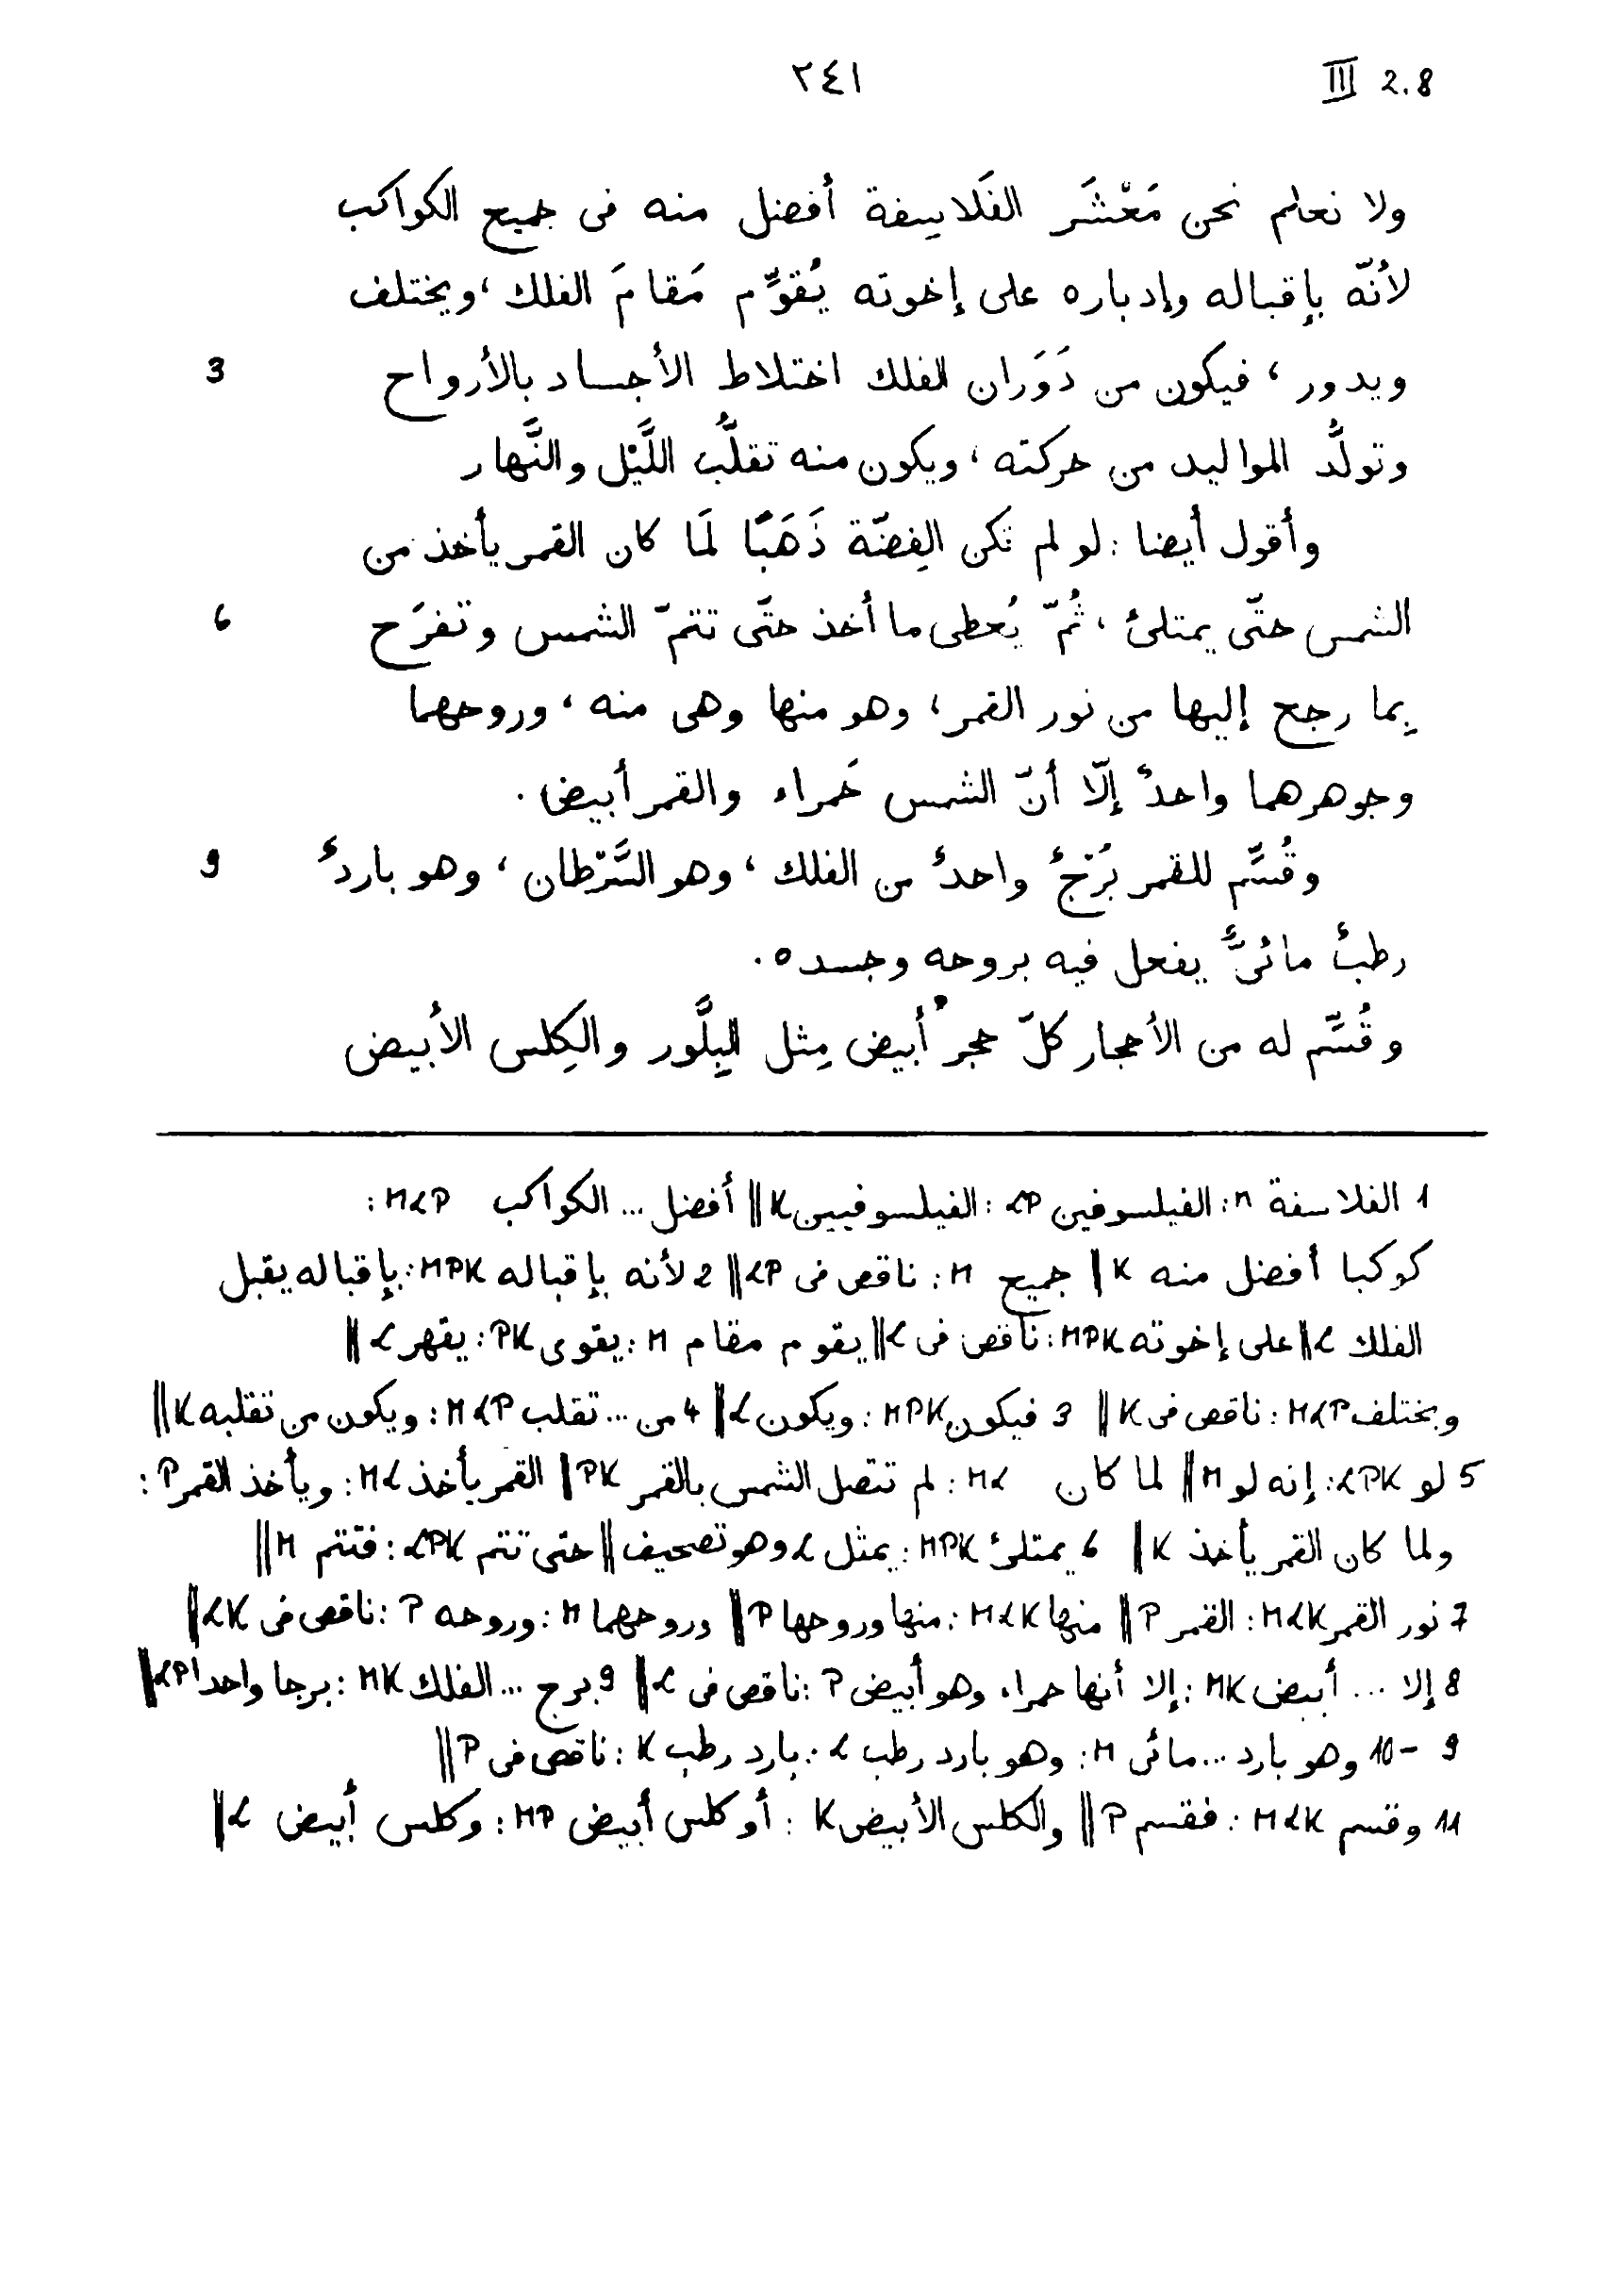 ٢٤١ III 2.8
ولا نعلم نحن مَعْشَر الفَلاسِفة أفضل منه فى جميع الكواكب
لأنّه بإقباله وإدباره على إخوته يُقوِّم مَقامَ الفلك ، ويختلف
ويدور ، فيكون من دَوَران الفلك اختلاط الأجساد بالأرواح 3
وتولُّد المواليد من حركته ، ويكون منه تقلُّب اللَّيْل والنَّهار
وأقول أيضا : لو لم تكن الفِضّة ذَهَبًا لَمَا كان القمر يأخذ من
الشمس حتّى يمتلئ ، ثُمّ يُعطى ما أخذ حتّى تتمّ الشمس وتفرَح 6
بِما رجع إليها من نور القمر ، وهو منها وهى منه ، وروحهما
وجوهرهما واحدٌ إلّا أنّ الشمس حَمراء والقمر أبيض .
وقُسِّم للقمر بُرْجٌ واحدٌ من الفلك ، وهو السَّرَطان ، وهو باردٌ 9
رطبٌ مائىٌّ يفعل فيه بروحه وجسده .
وقُسِّم له من الأحجار كلّ حجرٍ أبيض مِثل البِلَّور والكِلس الأبيض
1 الفلاسفة M : الفيلسوفين LP : الفيلسوفيين K || أفضل ... الكواكب MLP :
كوكبا أفضل منه K || جميع M : ناقص فى LP || 2 لأنه بإقباله MPK : بإقباله يقبل
الفلك L || على إخوته MPK : ناقص فى L || يقوم مقام M : يقوى PK : يقهر L ||
ويختلف MLP : ناقص فى K || 3 فيكون MPK : ويكون L || 4 من ... تقلب MLP : ويكون من تقلبه K ||
5 لو LPK : إنه لو M || لما كان ML : لم تتصل الشمس بالقمر PK || القمر يأخذ ML : ويأخذ القمر P :
ولما كان القمر يأخذ K || 6 يمتلئ MPK : يمثل L وهو تصحيف || حتى تتم LPK : فتتم M ||
7 نور القمر MLK : القمر P || منها MLK : منها وروحها P || وروحهما M : وروحه P : ناقص فى LK ||
8 إلا ... أبيض MK : إلا أنها حمراء وهو أبيض P : ناقص فى L || 9 برج ... الفلك MK : برجا واحدا LP ||
9 - 10 وهو بارد ... مائى M : وهو بارد رطب L : بارد رطب K : ناقص فى P ||
11 وقسم MLK : فقسم P || والكلس الأبيض K : أو كلس أبيض MP : وكلس أبيض L ||